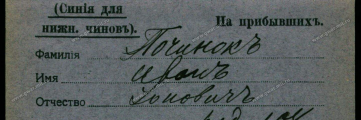 (Синія для
нижн. чиновъ).
На прибывшихъ.
Фамилія Починокъ
Имя Иванъ
Отчество